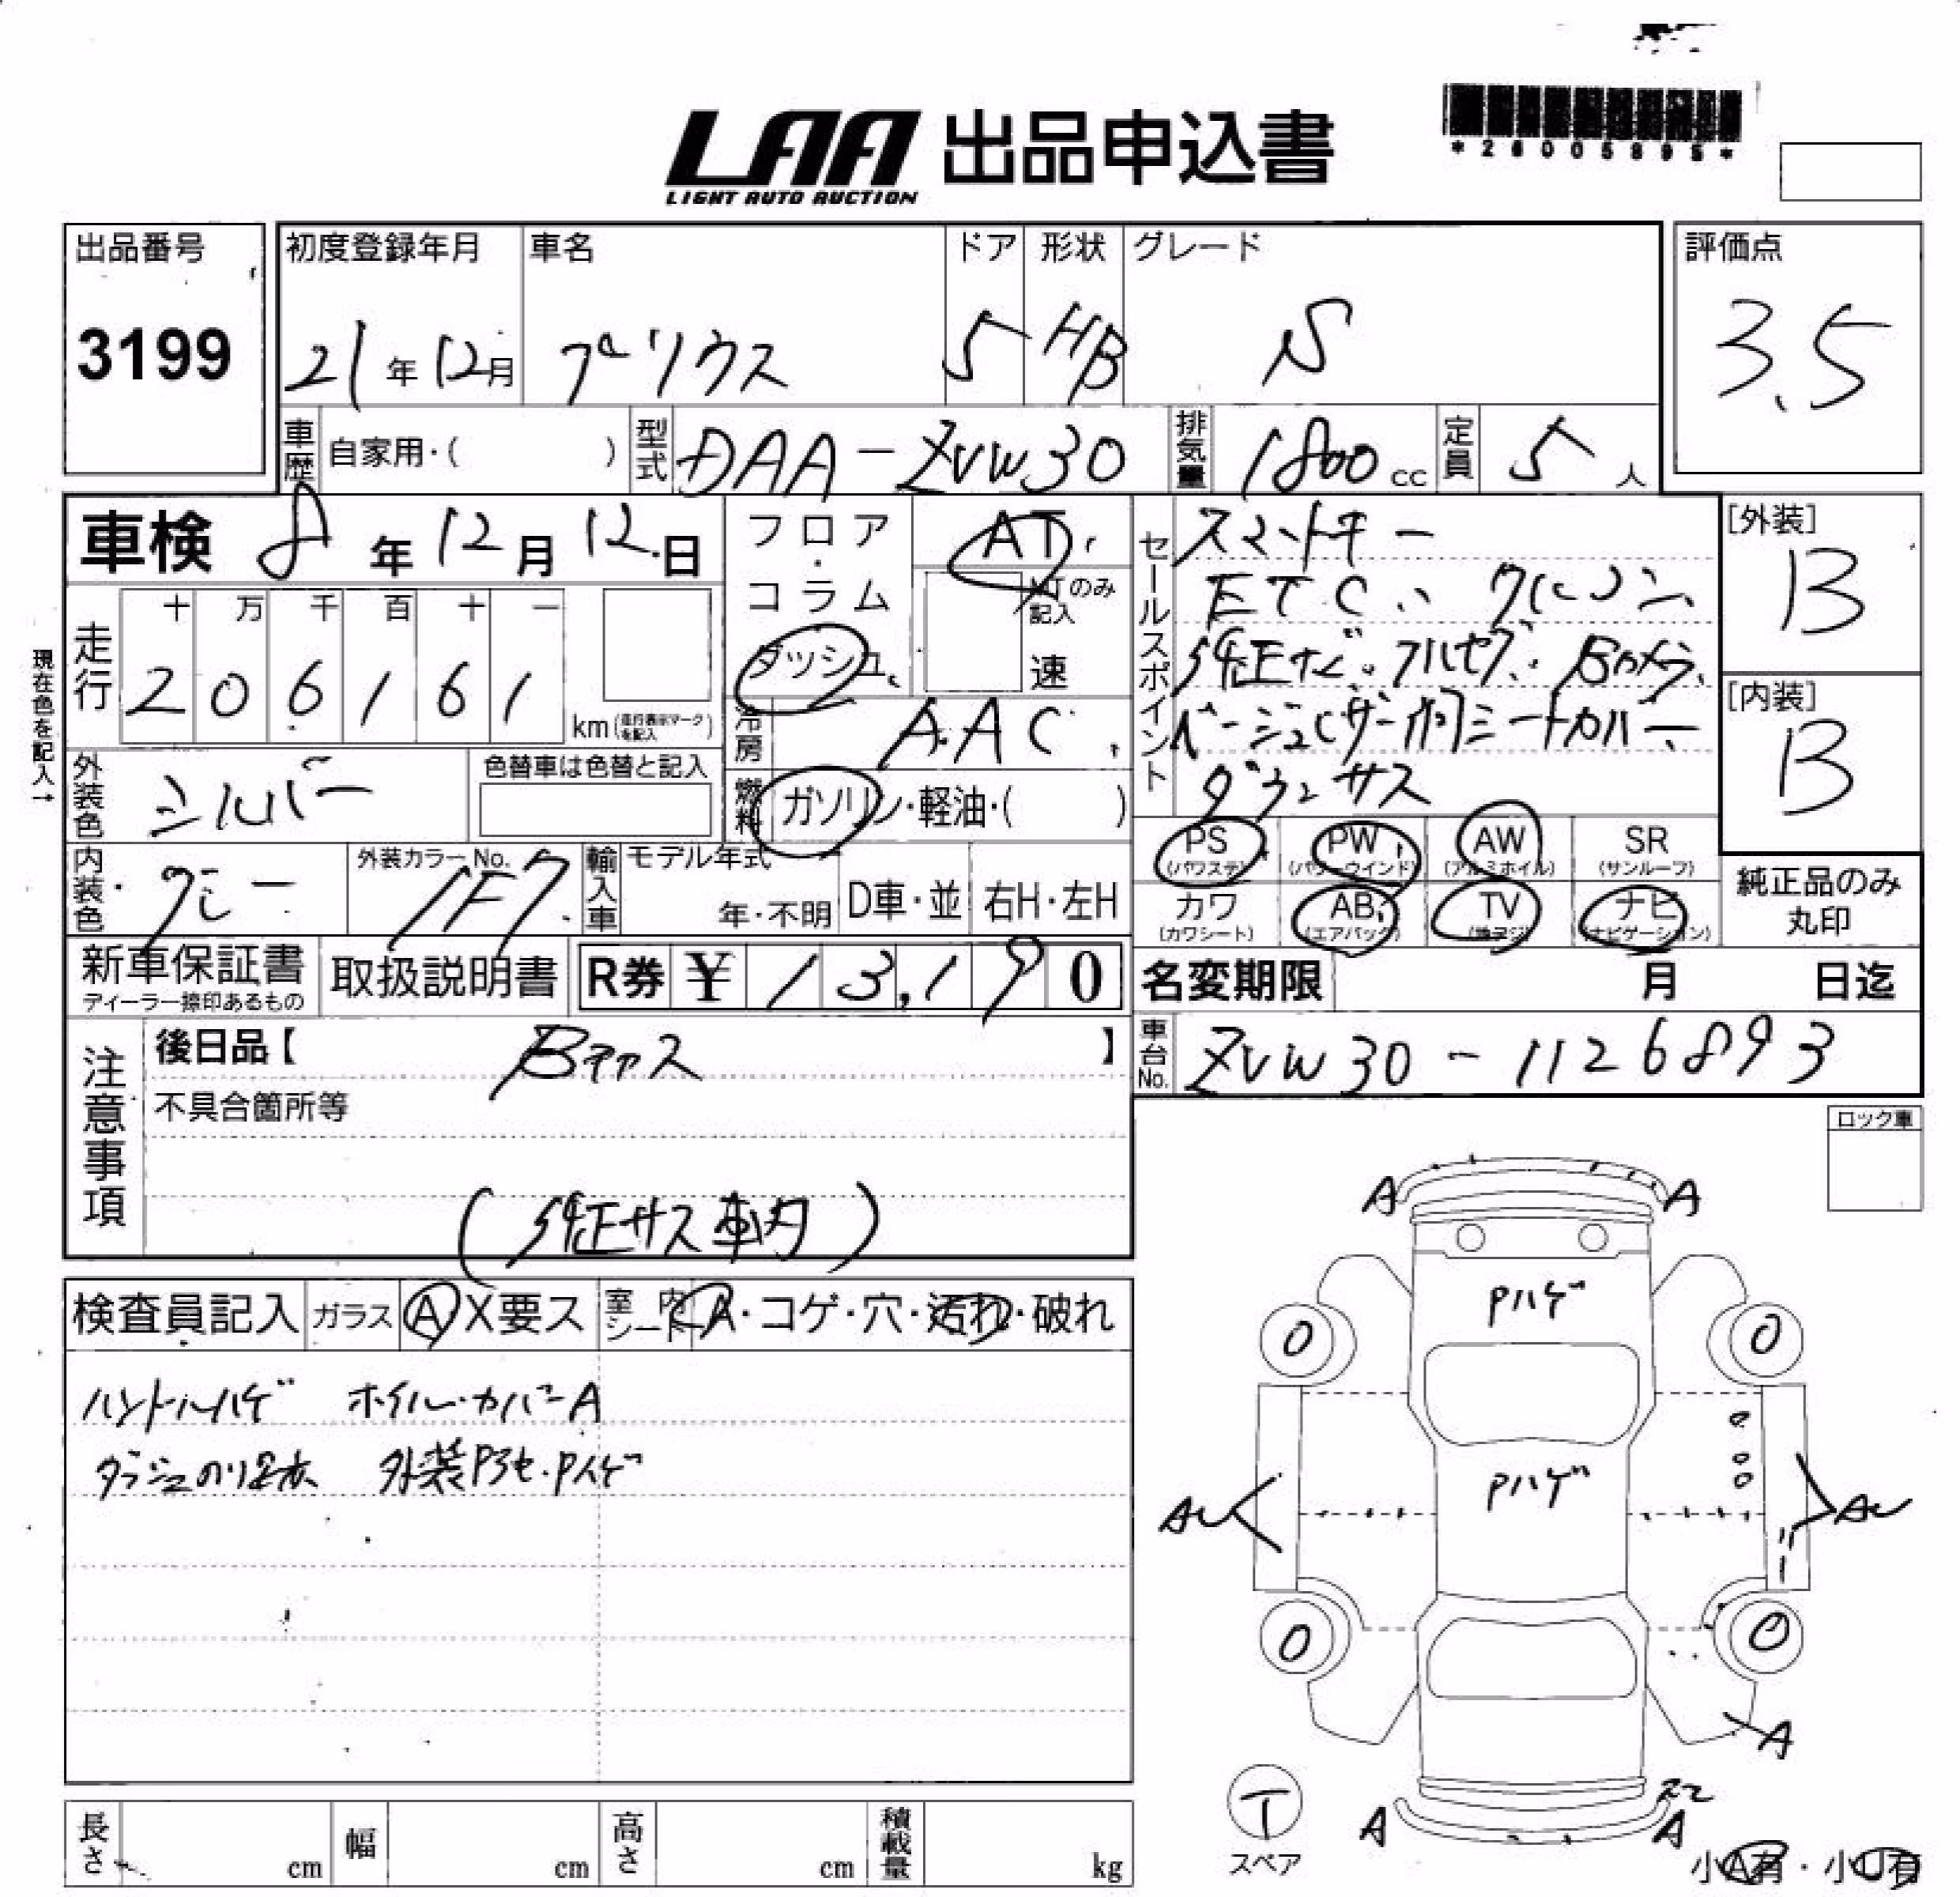 LAA 出品申込書
LIGHT AUTO AUCTION
*26005895*
出品番号
3199
初度登録年月
21年12月
車名
プリウス
ドア
5
形状
HB
グレード
S
評価点
3.5
車歴 自家用・( )
型式 DAA-ZVW30
排気量 1800cc
定員 5人
車検 8年12月12日
現在色を記入→
走行
十 万 千 百 十 一
2 0 6 1 6 1
km (走行表示マークを記入)
フロア・コラム
ダッシュ
AT
MTのみ記入
速
冷房 AAC
燃料 ガソリン・軽油・( )
セールスポイント
スマートキー
ETC、クルコン、
純正ナビ。フルセグ。Bカメラ
ベージュレザー調シートカバー
ダウンサス
[外装]
B
[内装]
B
外装色 シルバー
色替車は色替と記入
内装色 グレー
外装カラーNo. 1F7
輸入車 モデル年式
年・不明
D車・並
右H・左H
PS (パワステ)
PW (パワーウインド)
AW (アルミホイル)
SR (サンルーフ)
カワ (カワシート)
AB (エアバック)
TV (地デジ)
ナビ (ナビゲーション)
純正品のみ丸印
新車保証書
ディーラー捺印あるもの
取扱説明書
R券 ¥13,190
名変期限 月 日迄
車台No. ZVW30-1126893
注意事項
後日品【 】
不具合箇所等
(純正サス車内)
ロック車
検査員記入
ガラス A X要ス
室内シート A・コゲ・穴・汚れ・破れ
ハンドルハゲ ホイルカバーA
ダッシュのり跡 外装P3セ・Pハゲ
A A
Pハゲ
0 0
Pハゲ
AU AU
0 0
A
A A
T
スペア
小A有・小U有
長さ cm
幅 cm
高さ cm
積載量 kg